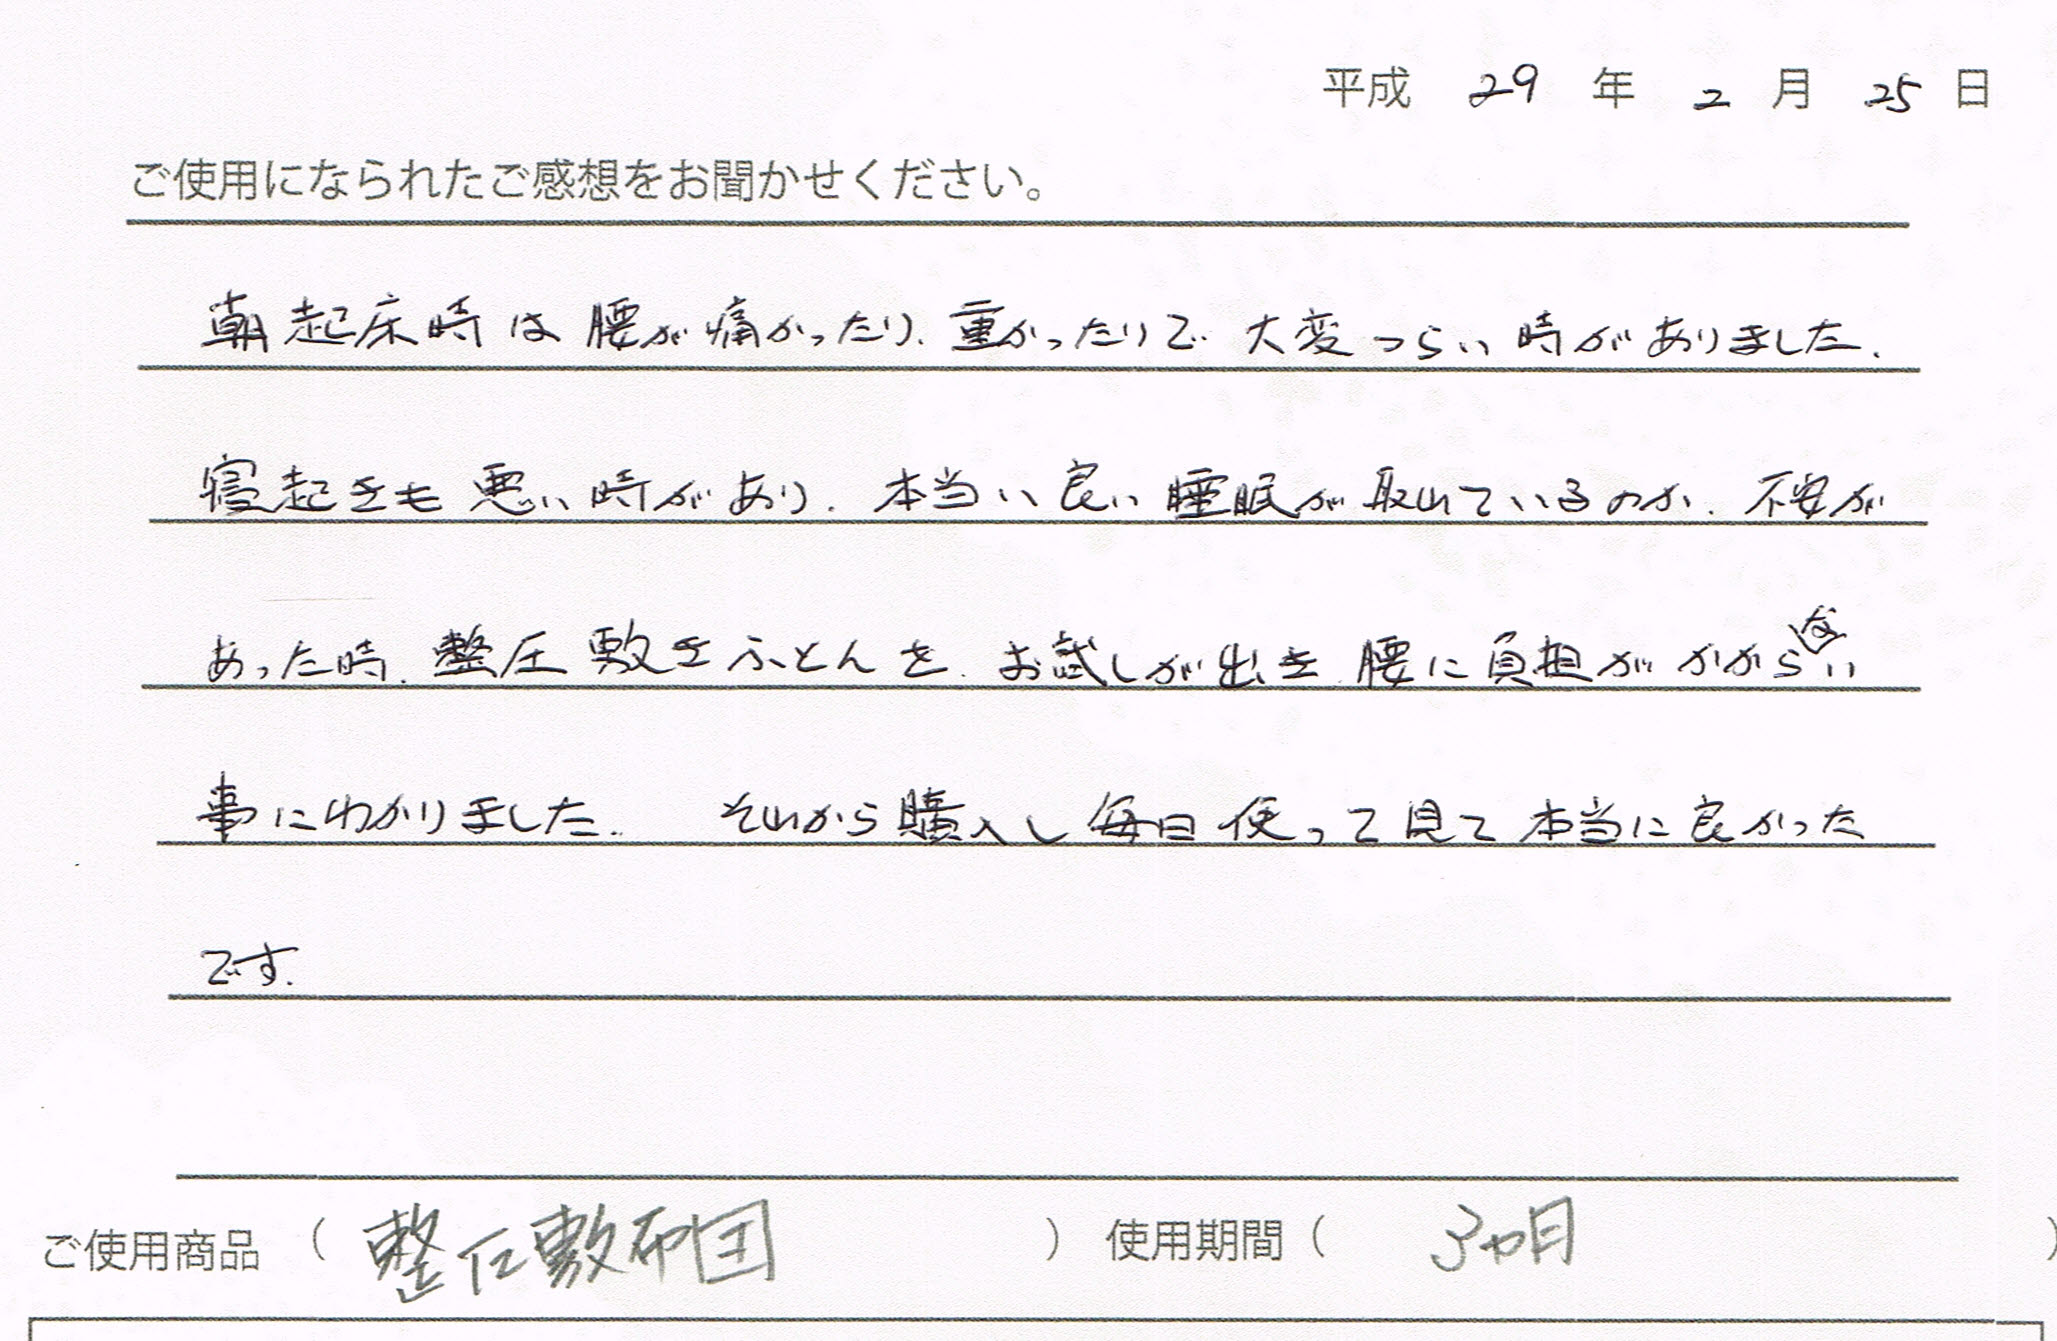 平成 29 年 2 月 25 日
ご使用になられたご感想をお聞かせください。
朝起床時は腰が痛かったり、重かったりで大変つらい時がありました、
寝起きも悪い時があり、本当い良い睡眠が取れているのか、不安が
あった時、整圧敷きふとんを、お試しが出き、腰に負担がかからない
事にわかりました。 それから購入し毎日使って見て本当に良かった
です。
ご使用商品 ( 整圧敷布団 ) 使用期間 ( 3ヵ月 )